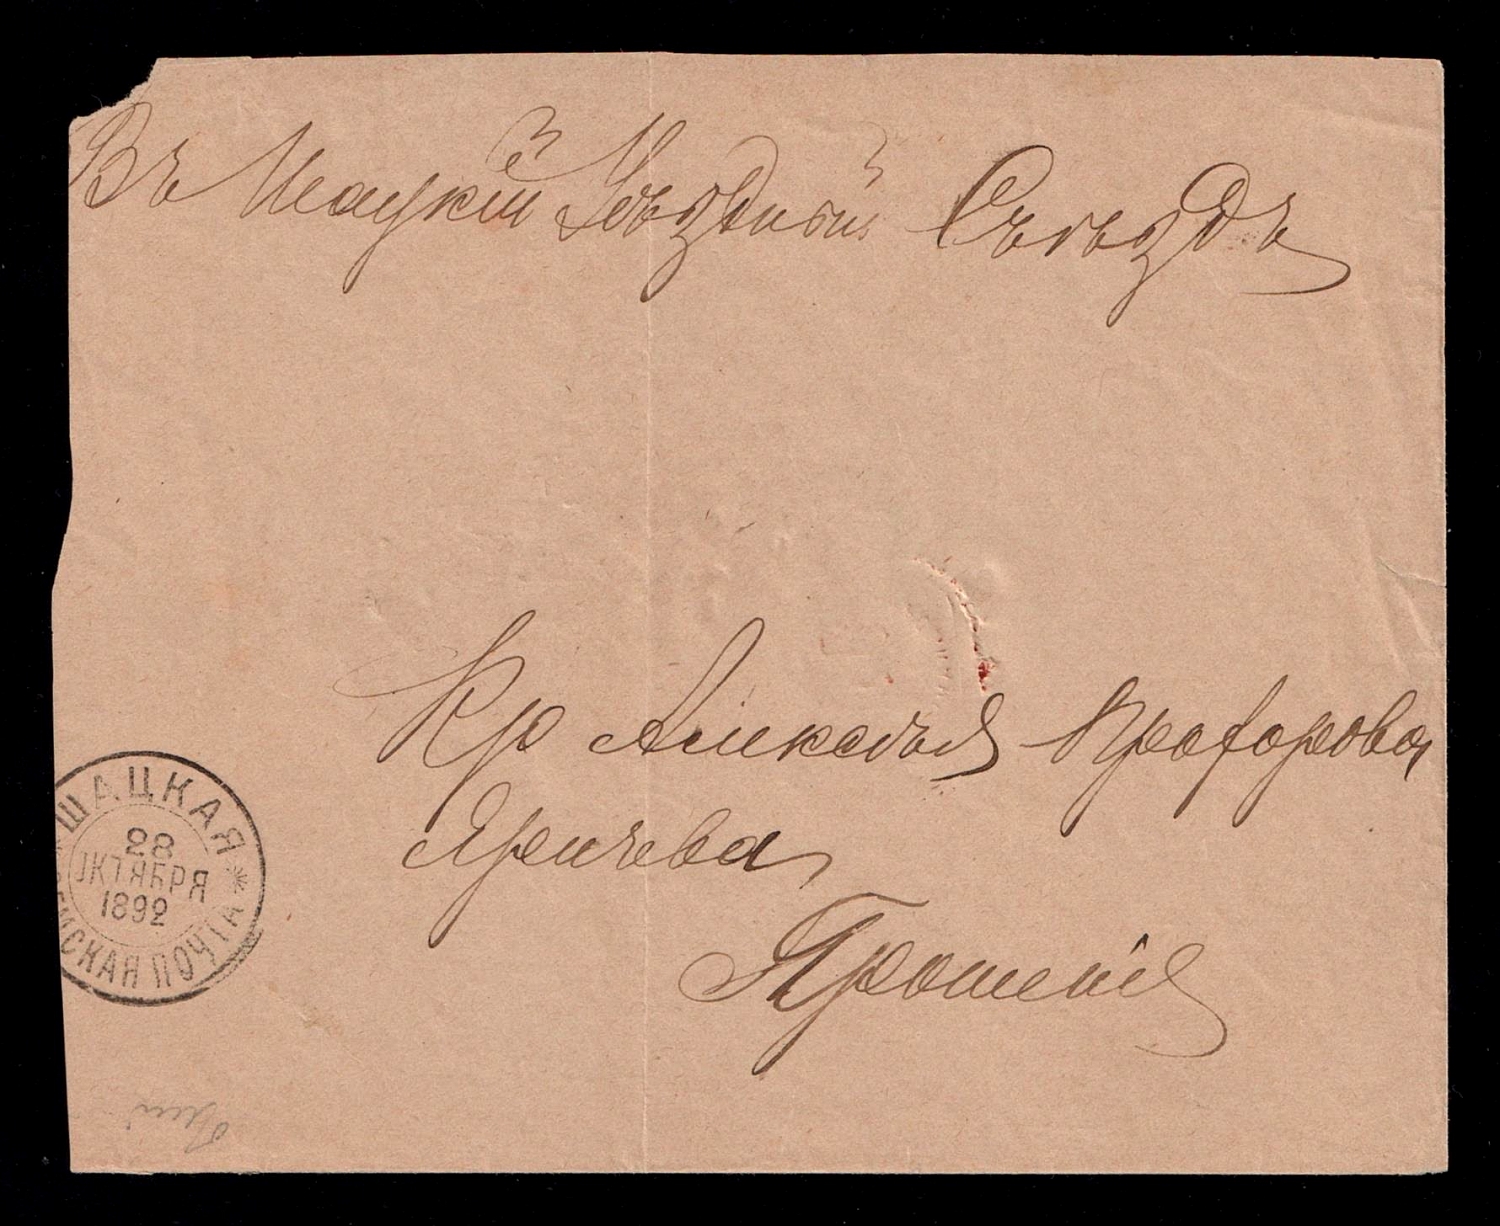 Въ Шацкій Уѣздный Съѣздъ
Кр Алексѣя Прохорова
Яричева
Прошеніе
ШАЦКАЯ
28
ОКТЯБРЯ
1892
ЗЕМСКАЯ ПОЧТА